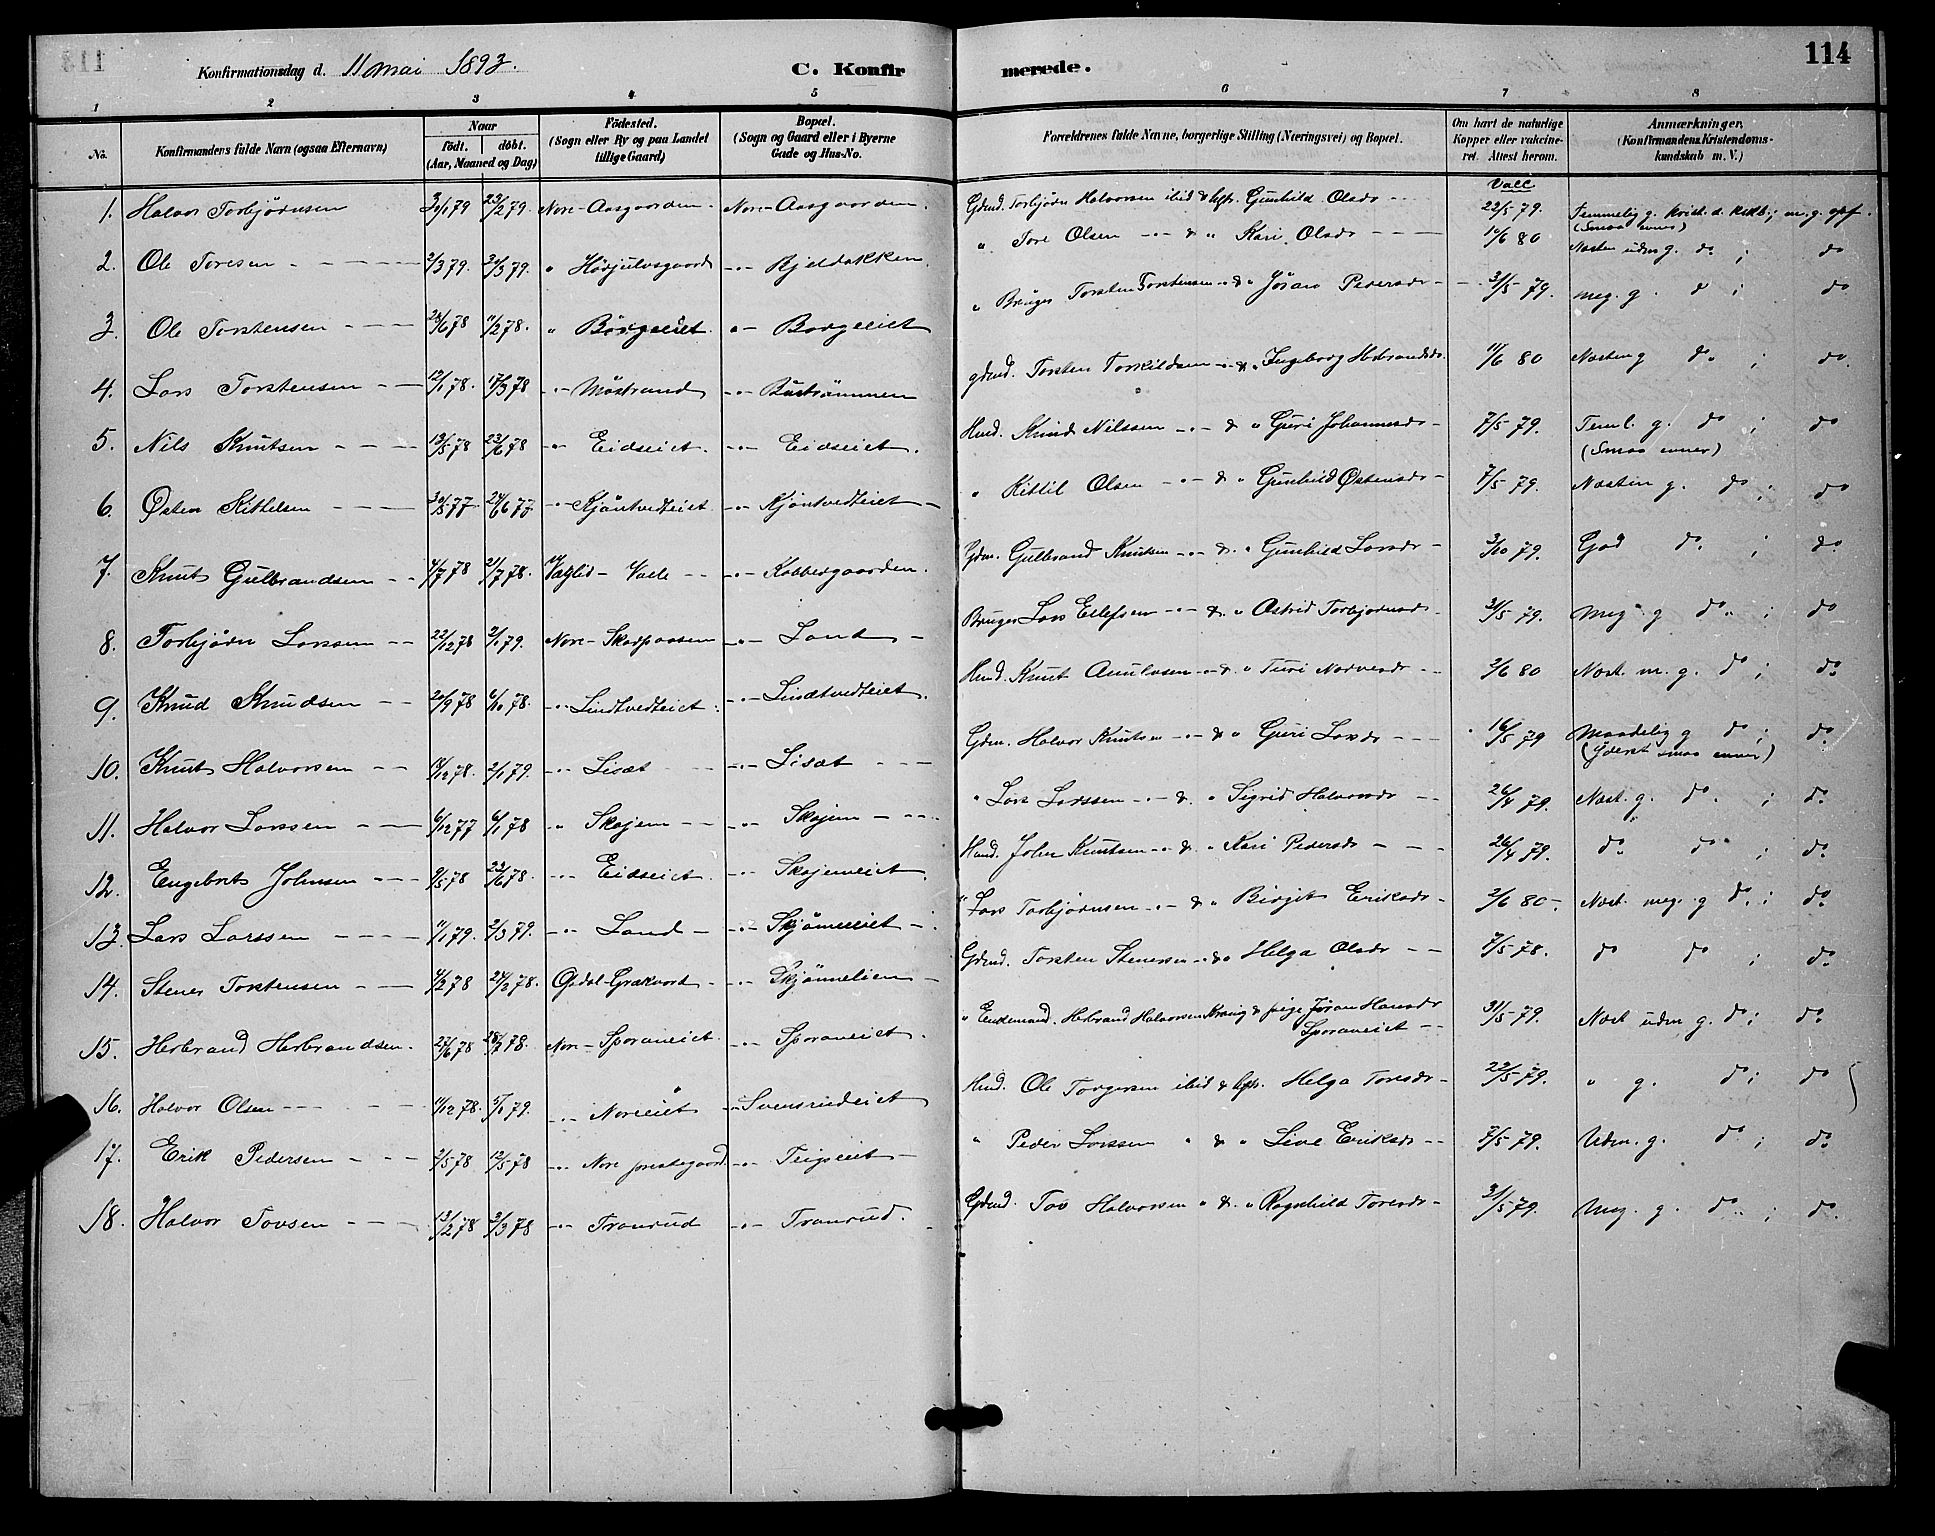 Konfirmationsdag d. 11 mai 1893. C. Konfirmerede. 114
1 2 3 4 5 6 7 8
No. Konfirmandens fulde Navn (ogsaa Efternavn) Naar födt. döbt. (Aar, Maaned og Dag) Födested. (Sogn eller By og paa Landet tillige Gaard) Bopæl. (Sogn og Gaard eller i Byerne Gade og Hus-No. Forældrenes fulde Navne, borgerlige Stilling (Næringsvei) og Bopæl. Om havt de naturlige Kopper eller vakcineret. Attest herom. Anmærkninger, (Konfirmandens Kristendomskundskab m. V.)
Vacc
1. Halvor Torbjørnsen 3/1 79 23/2 79. Nore - Aasgaarden - Nore - Aasgaarden. Gdmd. Torbjørn Halvorsen ibid & hst. Gunhild Olsdr - - 22/5 79. Temmelig g. krist. d. kdb.; m. g. opf.
(Smaa evner)
2. Ole Toresen - - - 2/3 79. 30/3 79. " Hørjulvsgaard -"- Bjeldakken. " Tore Olsen -"- & " Kari Olsdr - - - 10/6 80 Næsten udm g. do ; do
3. Ole Torstensen - - - 23/6 78 11/2 78. " Börgeeiet. "- Borgeeiet " Bruger Torsten Torstensen -"- & " Jöran Pedersdr - - 31/5 79. meg. g. do ; do
4. Lars Torstensen - - 12/1 78. 17/3 78 -"- Møstrand -"- Buströmmen gdmd. Torsten Torkildsen -"- & " Ingeborg Herbrandsdr. 11/6 80 Næsten g do ; do.
5. Nils Knutsen - - - 13/5 78 23/6 78 -"- Eidseiet. -"- Eidseiet. Hmd. Knud Nilssen -"- & " Guri Johannesdr - 7/5 79. Teml. g. do ; do
(Smaa evner)
6. Østen Kittelsen - - - 30/5 77 24/6 77 -"- Kjöntvedteiet -"- Kjöntvedteiet - " Kittil Olsen -"- & " Gunhild Østensdr - 7/5 79. Næsten g. do ; do
7. Knut Gulbrandsen - - 4/7 78 21/7 78. Væglid - Valle - - -"- Kobbergaarden. Gdm. Gulbrand Knutsen -"- & " Gunhild Larsdr - 3/10 79. God do. ; do.
8. Torbjørn Larssen - - 22/12 78 2/1 79. Nore - Skarpaasen -"- Land - Bruger Lars Ellefsen -"- & " Astrid Torbjørnsdr 31/5 79. Meg. g do. ; do
9. Knud Knudsen - - 20/9 78 6/10 78. -"- Lindtvedteiet. -"- Lindtvedteiet. Hmd. Knut Amulvsen -"- & " Turi Narvesdr - - 2/6 80 Næst. m. g. do ; do.
10. Knut Halvorsen - - 11/12 78. 2/1 79. -"- Lisæt - - -"- Lisæt - - - Gdm. Halvor Knutsen -"- & " Guri Larsdr - - - 16/5 79 Maadelig g do ; do.
(Yderst smaa evner)
11. Halvor Larssen - - - 6/12 77 6/1 78 " Skajem - - -"- Skajem - - - " Lars Larssen -"- & " Sigrid Halvorsdr - - 26/4 79. Næst. g. do. ; do.
12. Engebret Johnsen - - - 9/5 78 23/6 78. -"- Eidseiet. -"- Skajemeiet. Hmd. John Knutsen -"- & " Kari Pedersdr - - - 26/4 79. do. do. ; do.
13. Lars Larssen - - - - 11/1 79. 2/3 79. -"- Land - -"- Skjönneeiet - " Lars Torbjørnsen -"- & " Birgit Eriksdr - 2/6 80 - Næst. meg. g do. ; do.
14. Stener Torstensen - - - 4/2 78 24/2 78. Opdal - Grækvort - -"- Skjönnelien - Gdmd. Torsten Stenersen -"- & " Helga Olsdr - - 7/5 78. do do ; do.
15. Herbrand Herbrandsen. 22/6 78 28/7 78. Nore - Sporaneiet -"- Sporaneiet " Enkemand. Herbrand Halvorsen Kravig & pige Jøran Hansdr 31/5 79. Næst udm g. do ; do.
Sporaneiet - -
16. Halvor Olsen - - - 11/12 78. 5/1 79. -"- Noreeiet -"- Svensrudeiet Hmd. Ole Torgersen ibid & hst. Helga Toresdr - 22/5 79. " g. do ; do
17. Erik Pedersen - - - 2/5 78 12/5 78 -"- Nore prestegaard -"- Teigseiet - " Peder Larssen " & " Live Eriksdr - - 7/5 79. Udm. g. do ; do.
18. Halvor Tovsen - - - 13/2 78 3/3 78 -"- Tranrud -"- Tranrud. - Gdmd. Tov Halvorsen " & " Ragnhild Toresdr - 31/5 79. Meg. g. do. ; do.